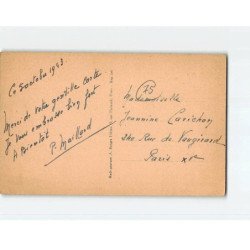 Ce 5 octobre 1953.
Merci de votre gentille carte
Je vous embrasse bien fort
A Bientôt
P. Maillard
75
Mademoiselle
Jeannine Carichon
Rue de Vaugirard
Paris XVe